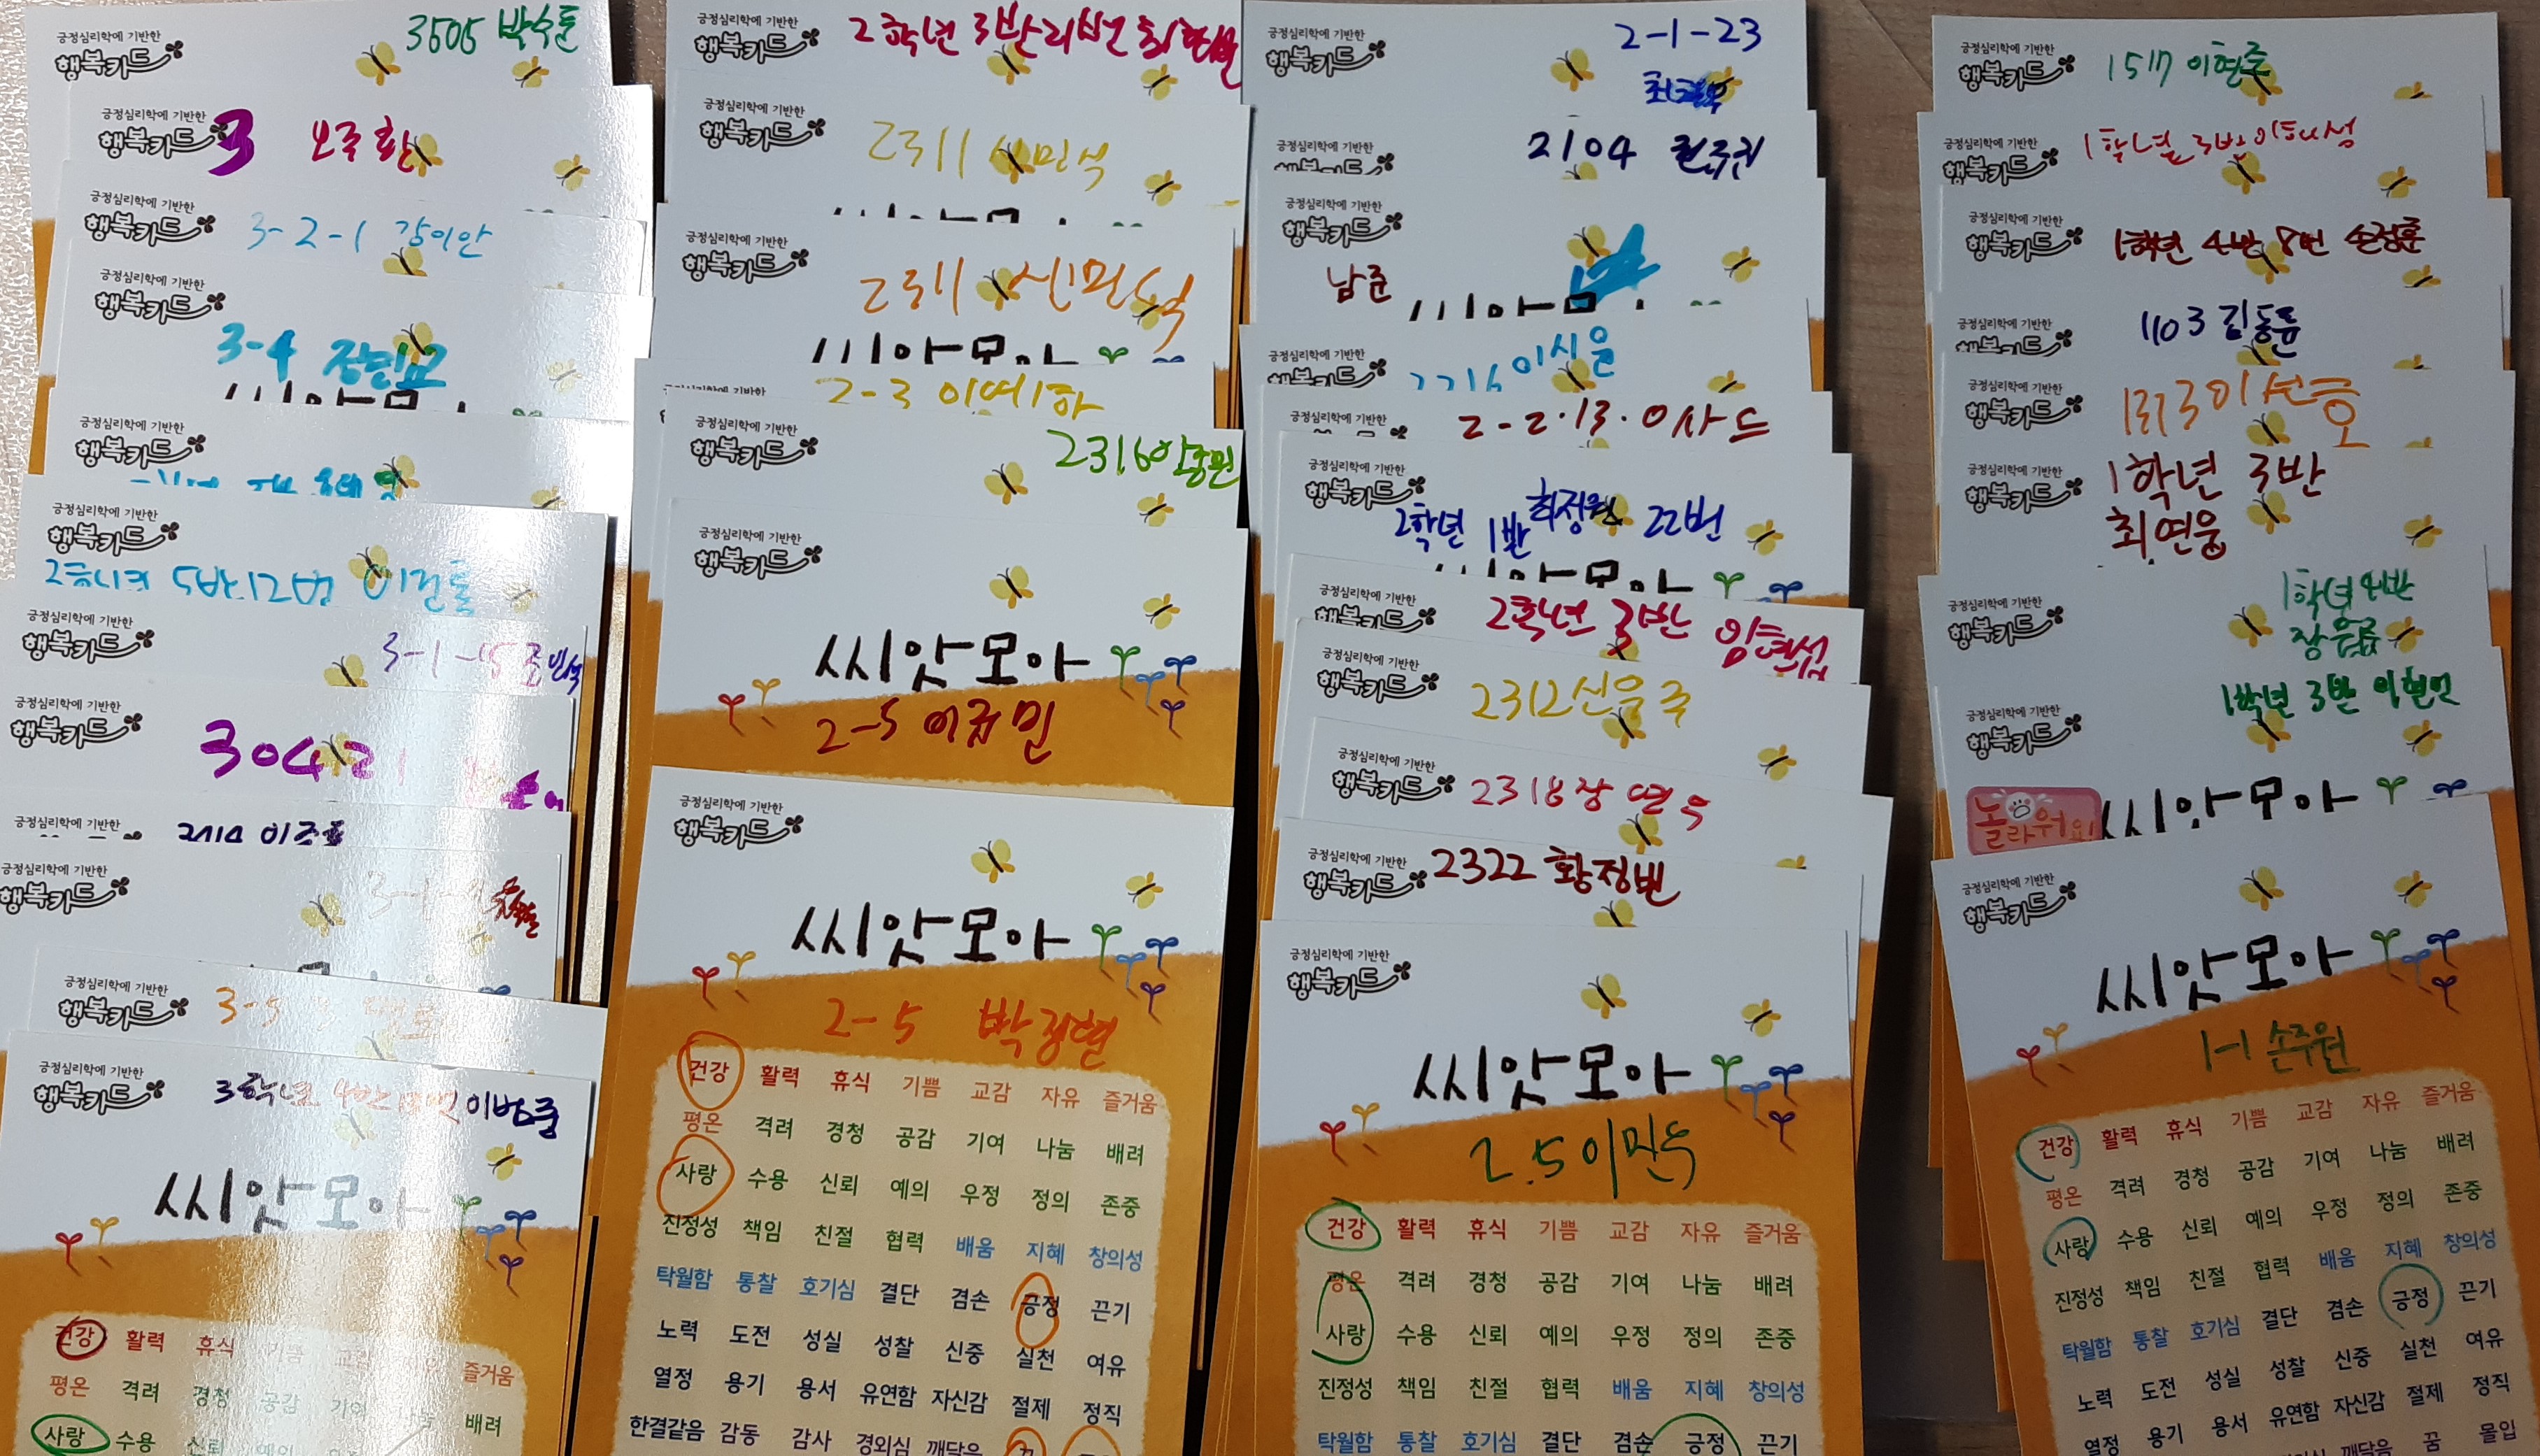 긍정심리학에 기반한
행복카드
3505 박수톤
긍정심리학에 기반한
행복카드
3 오주환
긍정심리학에 기반한
행복카드
3-2-1 강이안
긍정심리학에 기반한
행복카드
3-4
긍정심리학에 기반한
행복카드
긍정심리학에 기반한
행복카드
5반 12번
긍정심리학에 기반한
행복카드
3-1-15 조민석
긍정심리학에 기반한
행복카드
30421
긍정심리학에 기반한
긍정심리학에 기반한
행복카드
긍정심리학에 기반한
행복카드
3-5
긍정심리학에 기반한
행복카드
3학년 4반 이범중
씨앗모아
건강 활력 휴식 기쁨 교감 즐거움
평온 격려 경청 공감 기여 나눔 배려
사랑 수용 신뢰 예의
긍정심리학에 기반한
행복카드
2학년 3반
긍정심리학에 기반한
행복카드
2311 신민석
긍정심리학에 기반한
행복카드
2311 신민석
씨앗모아
2-3 이예하
긍정심리학에 기반한
행복카드
2316
긍정심리학에 기반한
행복카드
씨앗모아
2-5 이규민
긍정심리학에 기반한
행복카드
씨앗모아
2-5 박정현
건강 활력 휴식 기쁨 교감 자유 즐거움
평온 격려 경청 공감 기여 나눔 배려
사랑 수용 신뢰 예의 우정 정의 존중
진정성 책임 친절 협력 배움 지혜 창의성
탁월함 통찰 호기심 결단 겸손 긍정 끈기
노력 도전 성실 성찰 신중 실천 여유
열정 용기 용서 유연함 자신감 절제 정직
한결같음 감동 감사 경외심 깨달음
긍정심리학에 기반한
행복카드
2-1-23
긍정심리학에 기반한
행복카드
2104 권주권
긍정심리학에 기반한
행복카드
남준
긍정심리학에 기반한
행복카드
2216 이시율
긍정심리학에 기반한
2-2·13·이사드
긍정심리학에 기반한
행복카드
2학년 1반 최정원 22번
긍정심리학에 기반한
행복카드
2학년 3반 임현섭
긍정심리학에 기반한
행복카드
2312 신우주
긍정심리학에 기반한
행복카드
2318 장연우
긍정심리학에 기반한
행복카드
2322 황정빈
긍정심리학에 기반한
행복카드
씨앗모아
2.5 이민우
건강 활력 휴식 기쁨 교감 자유 즐거움
평온 격려 경청 공감 기여 나눔 배려
사랑 수용 신뢰 예의 우정 정의 존중
진정성 책임 친절 협력 배움 지혜 창의성
탁월함 통찰 호기심 결단 겸손 긍정 끈기
긍정심리학에 기반한
행복카드
1517 이현준
긍정심리학에 기반한
행복카드
1학년 3반 이해성
긍정심리학에 기반한
행복카드
1학년 4반 8번 손정훈
긍정심리학에 기반한
행복카드
1103 김동윤
긍정심리학에 기반한
행복카드
1313 이선호
긍정심리학에 기반한
행복카드
1학년 3반
최연웅
긍정심리학에 기반한
행복카드
1학년 4반
장윤
긍정심리학에 기반한
행복카드
1학년 3반 이현언
놀라워요
씨앗모아
긍정심리학에 기반한
행복카드
씨앗모아
1-1 손주원
건강 활력 휴식 기쁨 교감 자유 즐거움
평온 격려 경청 공감 기여 나눔 배려
사랑 수용 신뢰 예의 우정 정의 존중
진정성 책임 친절 협력 배움 지혜 창의성
탁월함 통찰 호기심 결단 겸손 긍정 끈기
노력 도전 성실 성찰 신중 실천 여유
열정 용기 용서 유연함 자신감 절제 정직
깨달음 꿈 몰입